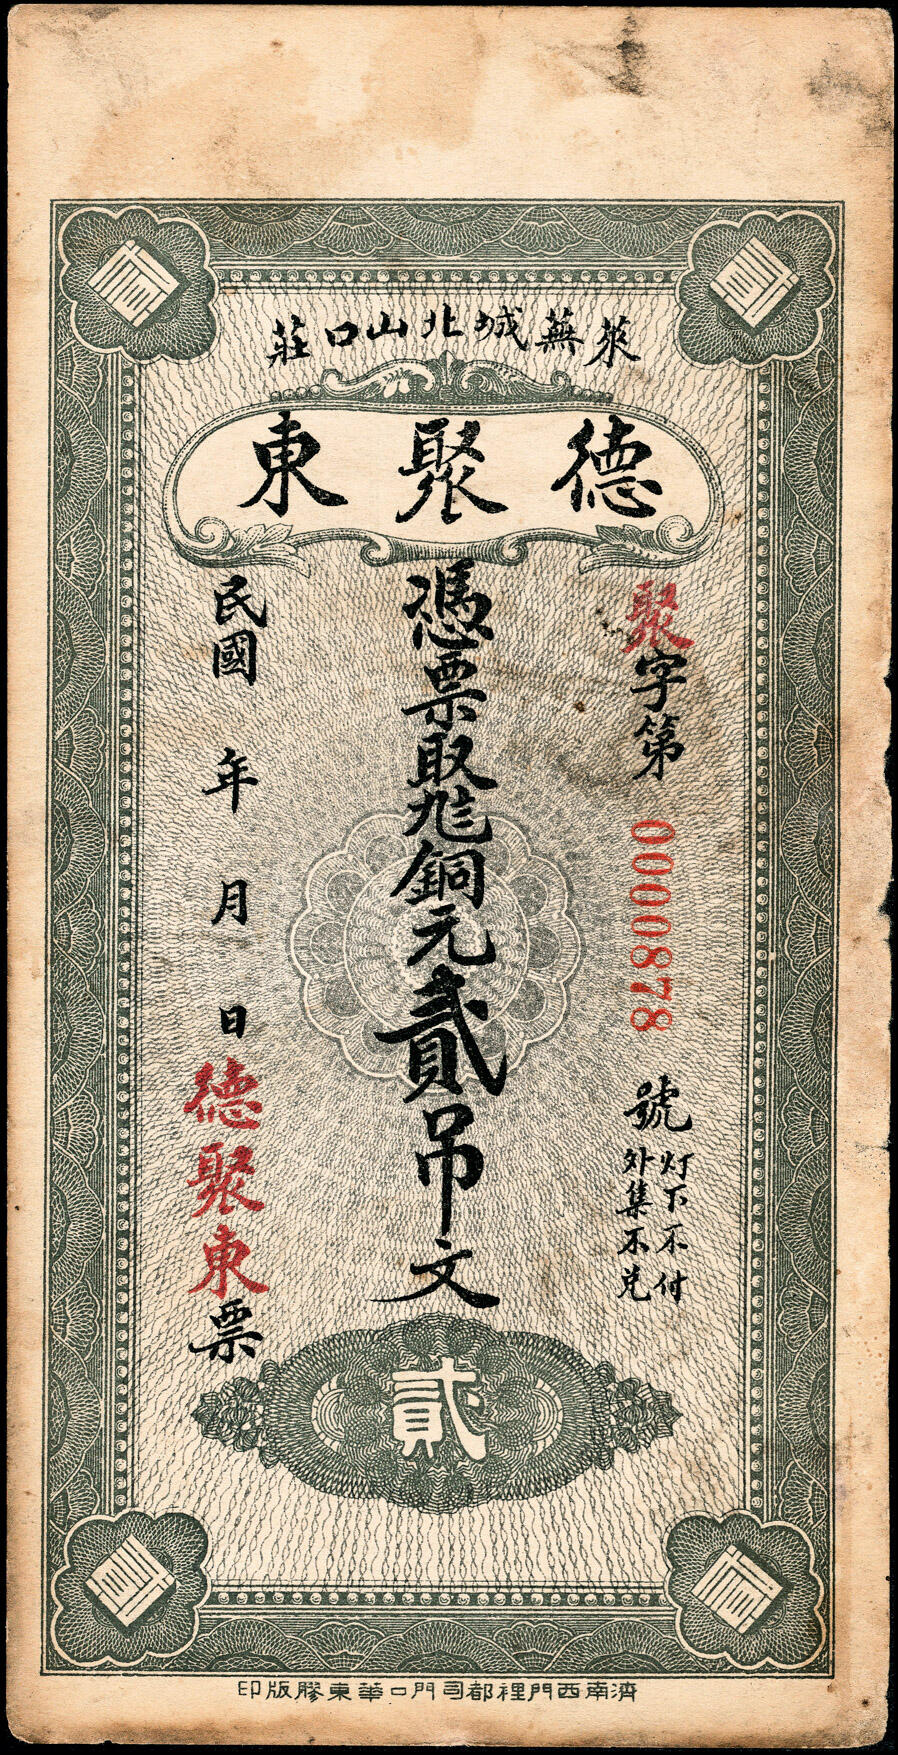 萊蕪城北山口莊
德聚東
聚字第 0000878 號
灯下不付
外集不兑
憑票取銅元貳吊文
民國 年 月 日
德聚東票
貳
濟南西門裡都司門口華東膠版印